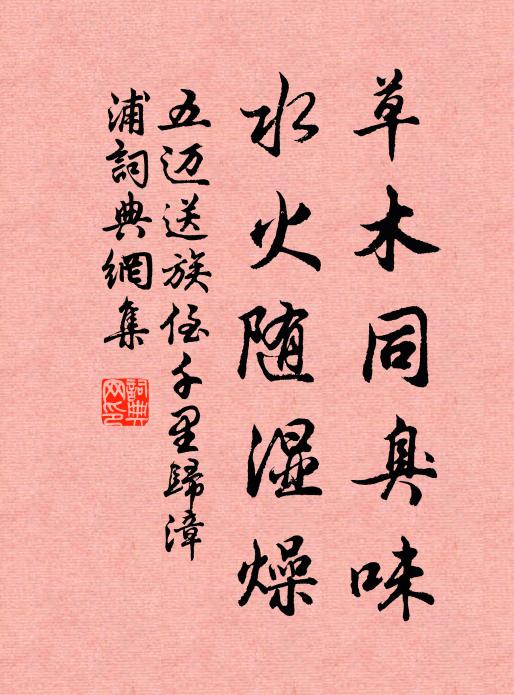 草木同臭味
水火随湿燥
五迈送族侄千里歸漳
浦詞典網集
詞典
网印